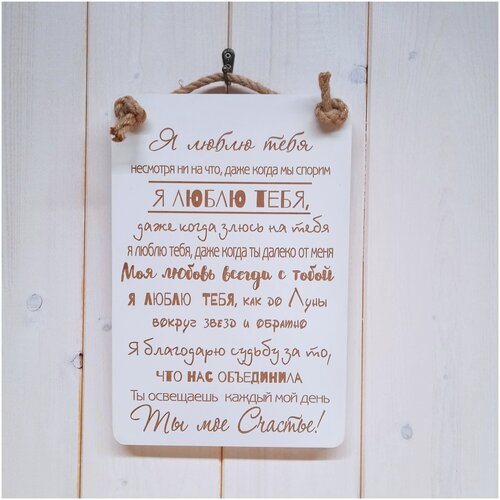 Я люблю тебя
несмотря ни на что, даже когда мы спорим
Я ЛЮБЛЮ ТЕБЯ,
даже когда злюсь на тебя
я люблю тебя, даже когда ты далеко от меня
Моя любовь всегда с тобой
Я ЛЮБЛЮ ТЕБЯ, как до Луны
вокруг звезд и обратно
Я благодарю судьбу за то,
что нас объединила
Ты освещаешь каждый мой день
Ты мое Счастье!